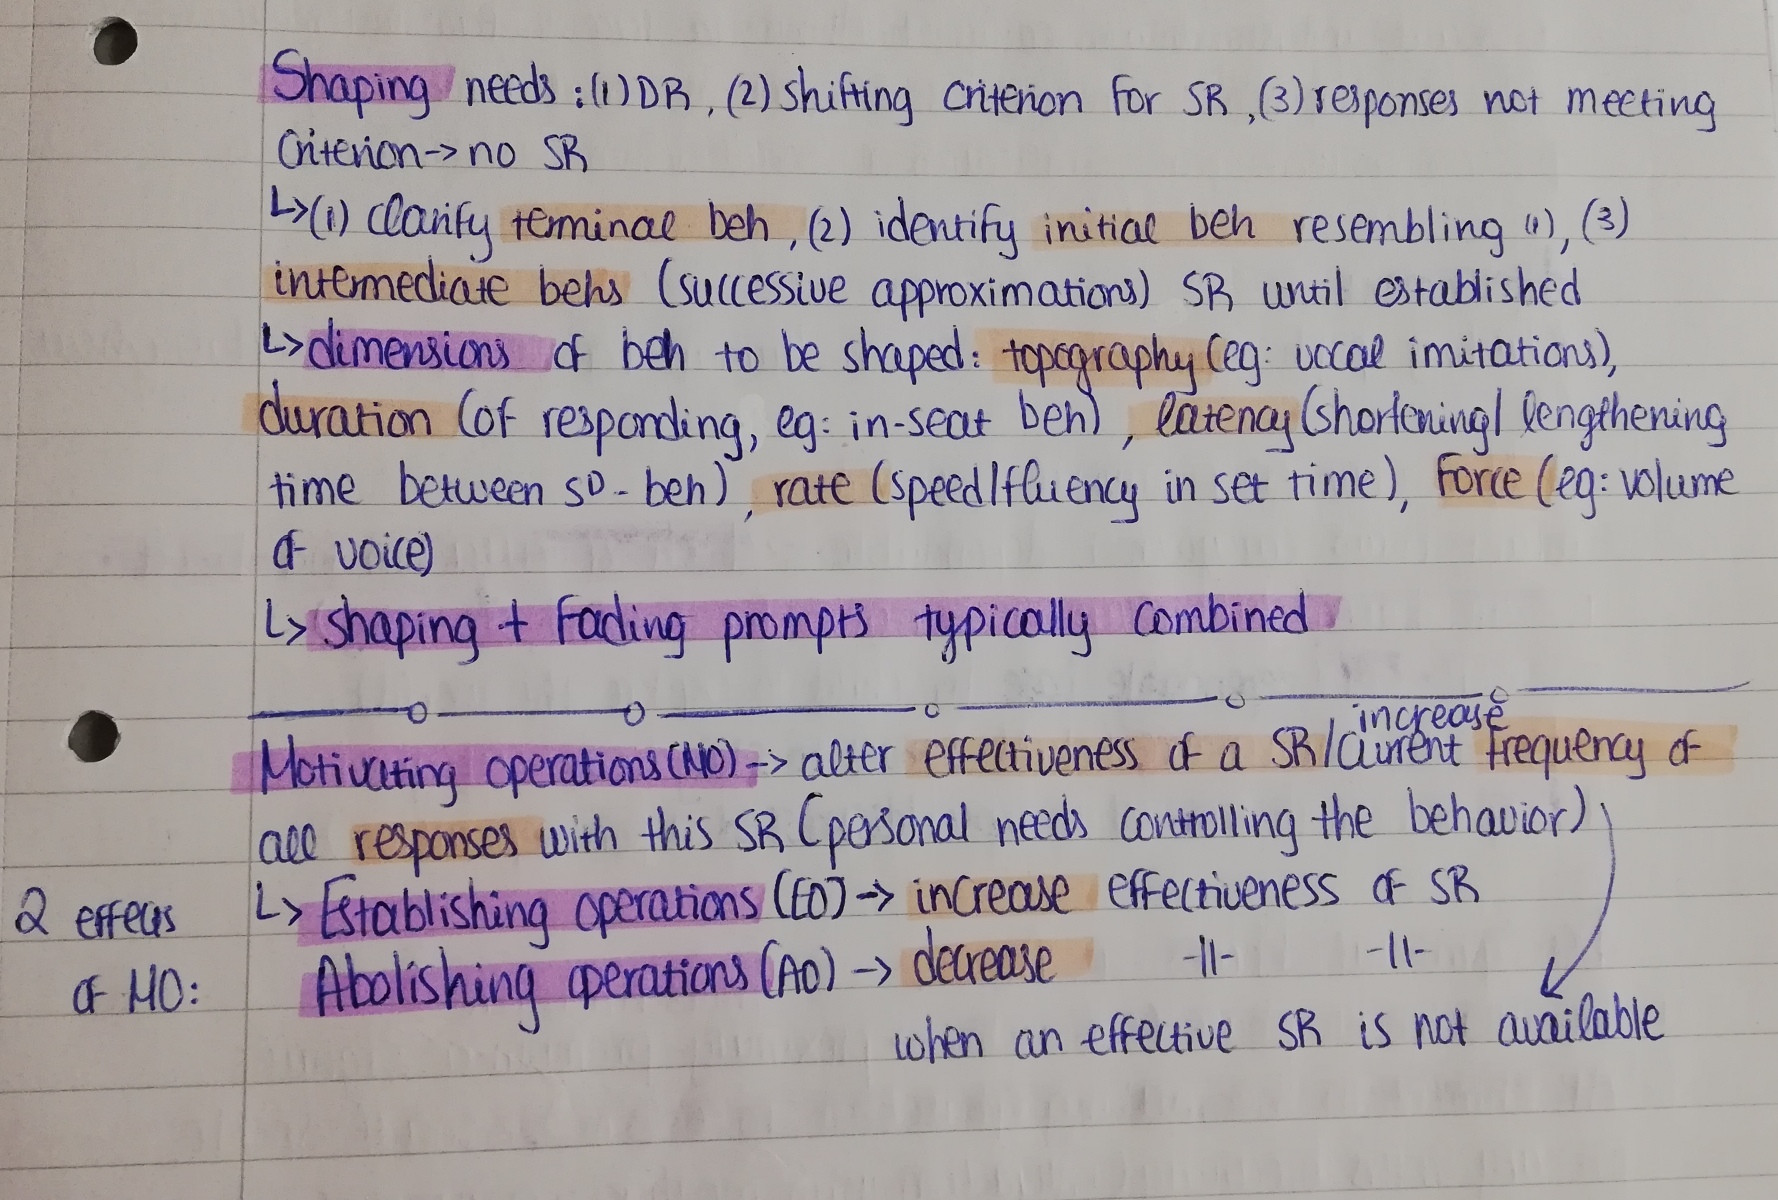 Shaping needs: (1) DR, (2) shifting criterion for SR, (3) responses not meeting
criterion → no SR
↳ (1) clarify terminal beh, (2) identify initial beh resembling (1), (3)
intermediate behs (successive approximations) SR until established
↳ dimensions of beh to be shaped: topography (eg: vocal imitations),
duration (of responding, eg: in-seat beh), latency (shortening/lengthening
time between SD - beh), rate (speed/fluency in set time), force (eg: volume
of voice)
↳ shaping + fading prompts typically combined
increase
Motivating operations (MO) → alter effectiveness of a SR/current frequency of
all responses with this SR (personal needs controlling the behavior)
2 effects ↳ Establishing operations (EO) → increase effectiveness of SR
of MO: Abolishing operations (AO) → decrease -||- -||-
when an effective SR is not available